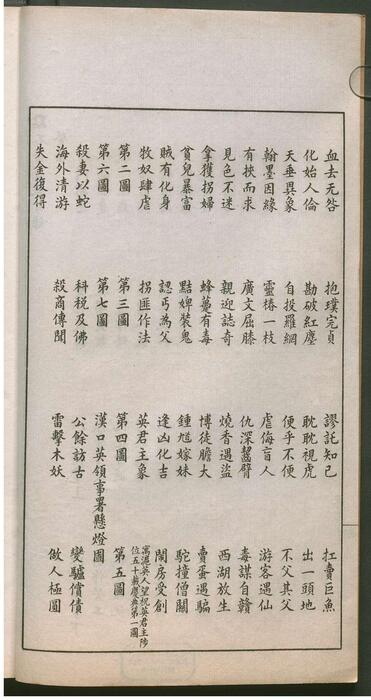 血去无咎 抱璞完貞 謬託知己 扛賣巨魚
化始人倫 勘破紅塵 耽耽視虎 出一頭地
天垂異象 自投羅網 便乎不便 不父其父
翰墨因緣 靈椿一枝 虐侮盲人 游客遇仙
有挾而求 廣文屈膝 仇深齧臂 毒謀自贛
見色不迷 親迎誌奇 燒香遇盜 西湖放生
拿獲拐婦 蜂蠆有毒 博徒膽大 賣蛋遇騙
貧兒暴富 黠婢裝鬼 鍾馗嫁妹 駝撞僧關
賊有化身 認丐為父 逢凶化吉 鬧房受創
牧奴肆虐 拐匪作法 英君主象 寓滬英人望祝英君主陟位五十載慶典第一圖
第二圖 第三圖 第四圖 第五圖
第六圖 第七圖 漢口英領事署懸燈圖
殺妻以蛇 科稅及佛 公餘訪古 變驢償債
海外清游 殺商傳聞 雷擊木妖 做人極圓
失金復得